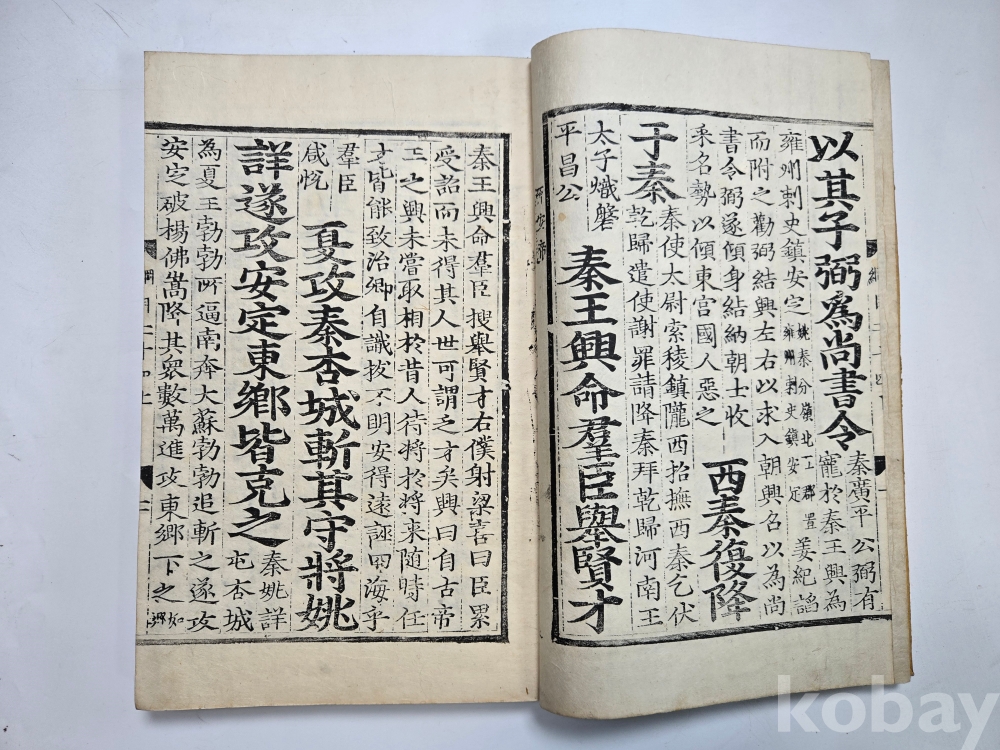 以其子弼爲尚書令
秦廣平公弼有
寵於秦王興為
雍州刺史鎮安定
姚秦分嶺北五郡置
雍州刺史鎮安定
姜紀謟
而附之勸弼結興左右以求入朝興名以為尚
書令弼遂傾身結納朝士收
采名勢以傾東宮國人惡之
西秦復降
于秦
秦使太尉索稜鎮隴西招撫西秦乞伏
乾歸遣使謝罪請降秦拜乾歸河南王
太子熾磐
平昌公
秦王興命羣臣舉賢才
秦王興命羣臣搜舉賢才右僕射梁喜曰臣累
受詔而未得其人世可謂乏才矣興曰自古帝
王之興未嘗取相於昔人待將於將来随時任
才皆能致治卿自識拔不明安得遠誣四海乎
羣臣
咸悅
夏攻秦杏城斬其守將姚
詳遂攻安定東鄉皆克之
秦姚詳
屯杏城
為夏王勃勃所逼南奔大蘇勃勃追斬之遂攻
安定破楊佛嵩降其衆數萬進攻東鄉下之
kobay